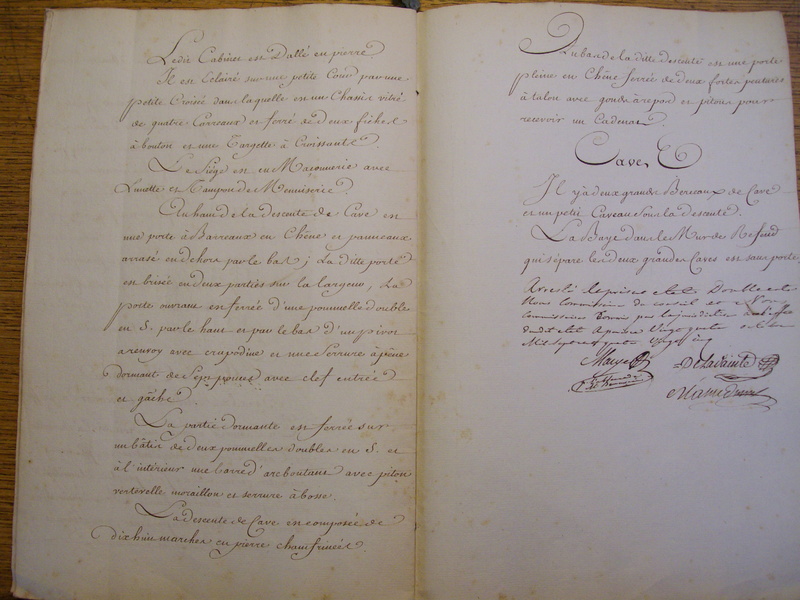 Ledit Cabinet est Dallé en pierre.
Il est Eclairé sur une petite Cour par une
petite Croisée dans laquelle est un Chassis vitré
de quatre Carreaux et ferré de deux fiches
à bouton et une Targette à Croissant.
Le Siège est en Maçonnerie avec
Lunette et Tampon de Menuiserie.
Au haut de la descente de Cave est
une porte à Barreaux en Chêne et panneaux
arrasé en dehors par le bas; La ditte porte
est brisée en deux parties sur la largeur, La
porte ouvrant est ferrée d'une pommelle double
en S. par le haut et par le bas d'un pivot
a renvoy avec crapodine et une Serrure à pêne
dormant de Sept pouces avec clef entrée
et gâche.
La partie dormante est ferrée sur
un bâtis de deux pommelles doubles en S. et
à l'intérieur une barre d'arcboutant avec piton
vertevelle moraillon et serrure à bosse.
La descente de Cave est composée de
dix huit marches en pierre chamfrinées.
Du bas de la ditte descente est une porte
pleine en Chêne ferrée de deux fortes pentures
à talon avec gonds à repos et pitons pour
recevoir un Cadenat.
Caves
Il y à deux grands Berceaux de Cave
et un petit Caveau Sous la descente.
La Baye dans le Mur de Refend
qui sépare les deux grandes Caves est sans porte
Arresté le présent etat Double entre
Nous Commissaire du conseil et Nous
Commissaires Nommés par la juridiction
dudit etat a paris vingt quatre
Mil Sept cent quatre vingt cinq